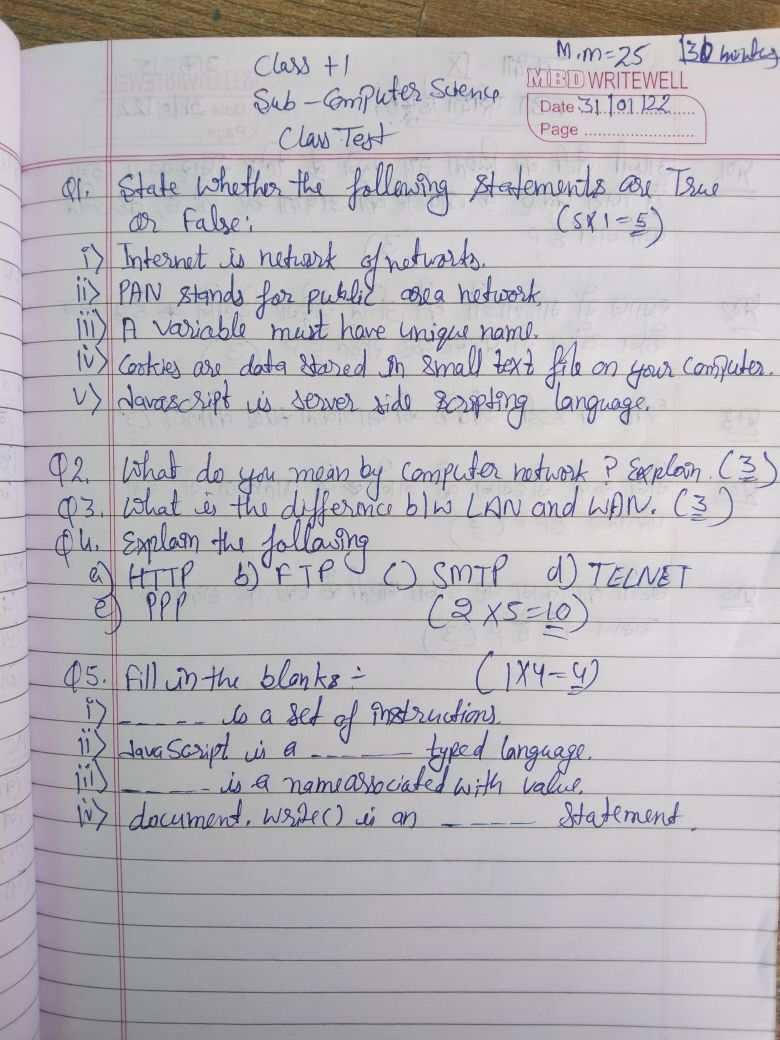 M.m=25 130 mintes
Class +1
MBD WRITEWELL
Sub - Computer Science
Date 31/01/22
Class Test
Page
Q1. State whether the following statements are True
or False: (5X1=5)
i) Internet is network of networks.
ii) PAN stands for public area network.
iii) A variable must have unique name.
iv) Cookies are data stored in small text file on your computer.
v) Javascript is server side scripting language.
Q2. What do you mean by computer network? Explain. (3)
Q3. What is the difference b/w LAN and WAN. (3)
Q4. Explain the following
a) HTTP b) FTP c) SMTP d) TELNET
e) PPP (2X5=10)
Q5. Fill in the blanks :- (1X4=4)
i) _ _ _ _ _ is a set of instructions.
ii) JavaScript is a _ _ _ _ _ typed language.
iii) _ _ _ _ _ is a name associated with value.
iv) document.write() is an _ _ _ _ _ Statement.